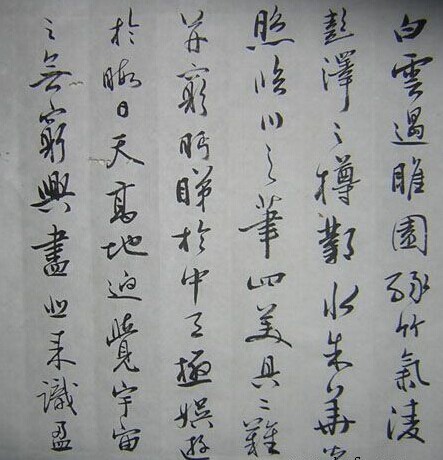 白雲遏睢園綠竹氣凌
彭澤之樽鄴水朱華光
照临川之筆四美具二難
并窮眄睇於中天極娱遊
於暇日天高地迥覺宇宙
之無窮興盡悲来識盈